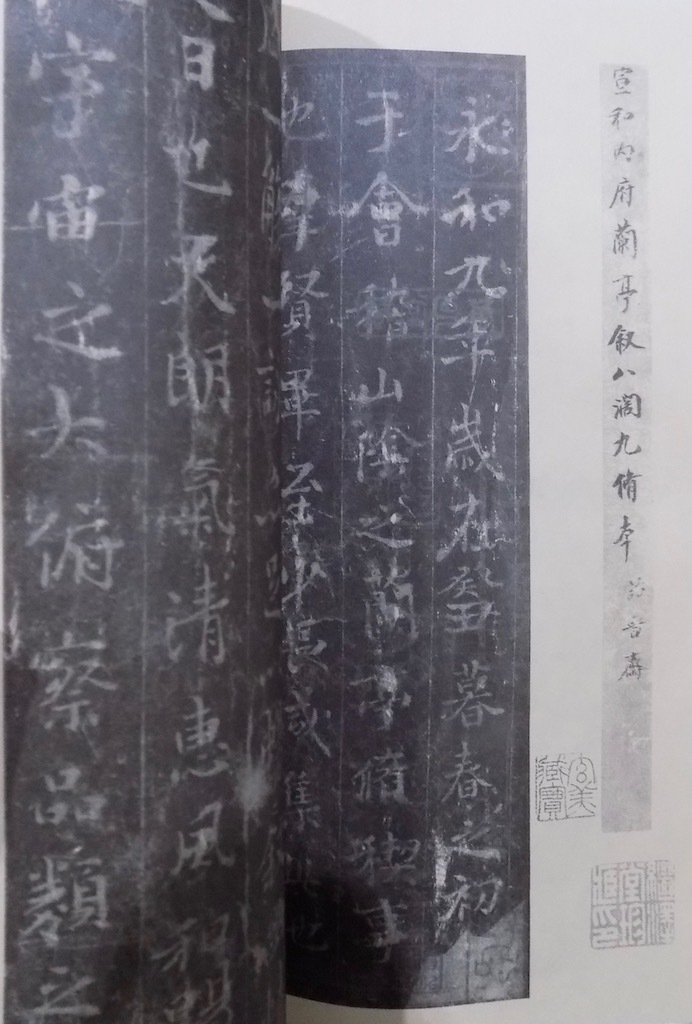 宣和内府蘭亭叙八濶九脩本 詒晉齋
永和九年歲在癸丑暮春之初
于會稽山陰之蘭亭脩稧事
也羣賢畢至少長咸集此地
日也天朗氣清惠風和暢
宇宙之大俯察品類之